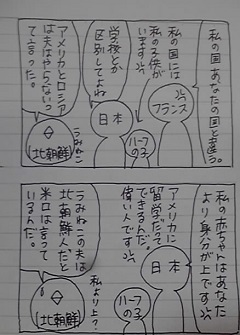 私の国、あなたの国と違う。
私の国には
私の子供が
います♡
フランス
学校とか
区別してよね
日本
ハーフ
の子
アメリカとロシア
は夫はやらないっ
て言った。
うみねこ
北朝鮮
私の赤ちゃんはあなた
より身分が上です♡
アメリカに
留学だって
できるんだ。
偉い人です♡
日本
ハーフ
の子
うみねこの夫は
北朝鮮人だと
米ロは言って
いるんだ。
私より上?
北朝鮮